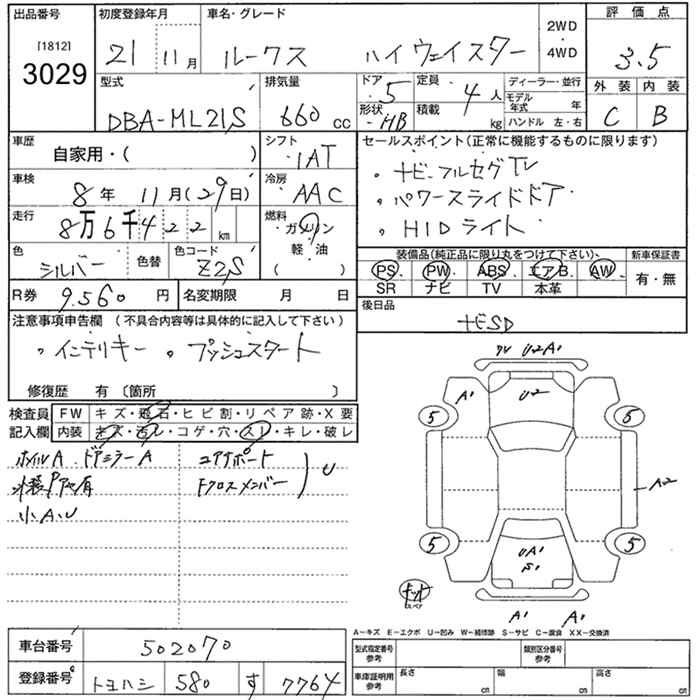 出品番号 初度登録年月 車名・グレード 2WD 評価点
[1812] 21 11月 ルークス ハイウェイスター 4WD 3.5
3029
型式 排気量 ドア 5 定員 4人 ディーラー・並行 外装 内装
DBA-ML21S 660cc 形状 HB 積載 kg モデル年式 年 C B
ハンドル 左・右
車歴 シフト セールスポイント(正常に機能するものに限ります)
自家用・( ) IAT 。ナビ-フルセグTV
車検 冷房 。パワースライドドア
8年 11月(29日) AAC 。HIDライト
走行 燃料
8万6千422km ガソリン
軽・油
( )
色 色替 色コード 装備品(純正品に限り丸をつけて下さい) 新車保証書
シルバー Z2S PS PW ABS エアB AW 有・無
SR ナビ TV 本革
R券 9.560円 名変期限 月 日 後日品
ナビSD
注意事項申告欄 (不具合内容等は具体的に記入して下さい)
。インテリキー 。プッシュスタート
修復歴 有 〔箇所 〕
検査員 FW キズ・飛石・ヒビ割・リペア跡・X要
記入欄 内装 キズ・汚レ・コゲ・穴・スレ・キレ・破レ
ホイルA ドアミラーA コアサポート
外装 有 Fクロスメンバー U
小A.U
U2 A1
A1 U2
5 5
A2
5 5
UA1
S1
スペア
A1 A1
A-キズ E-エクボ U-凹み W-補修跡 S-サビ C-腐食 XX-交換済
車台番号 502070 型式指定番号 参考 類別区分番号 参考
登録番号 トヨハシ 580 す 7764 車庫証明用 参考 長さ cm 幅 cm 高さ cm